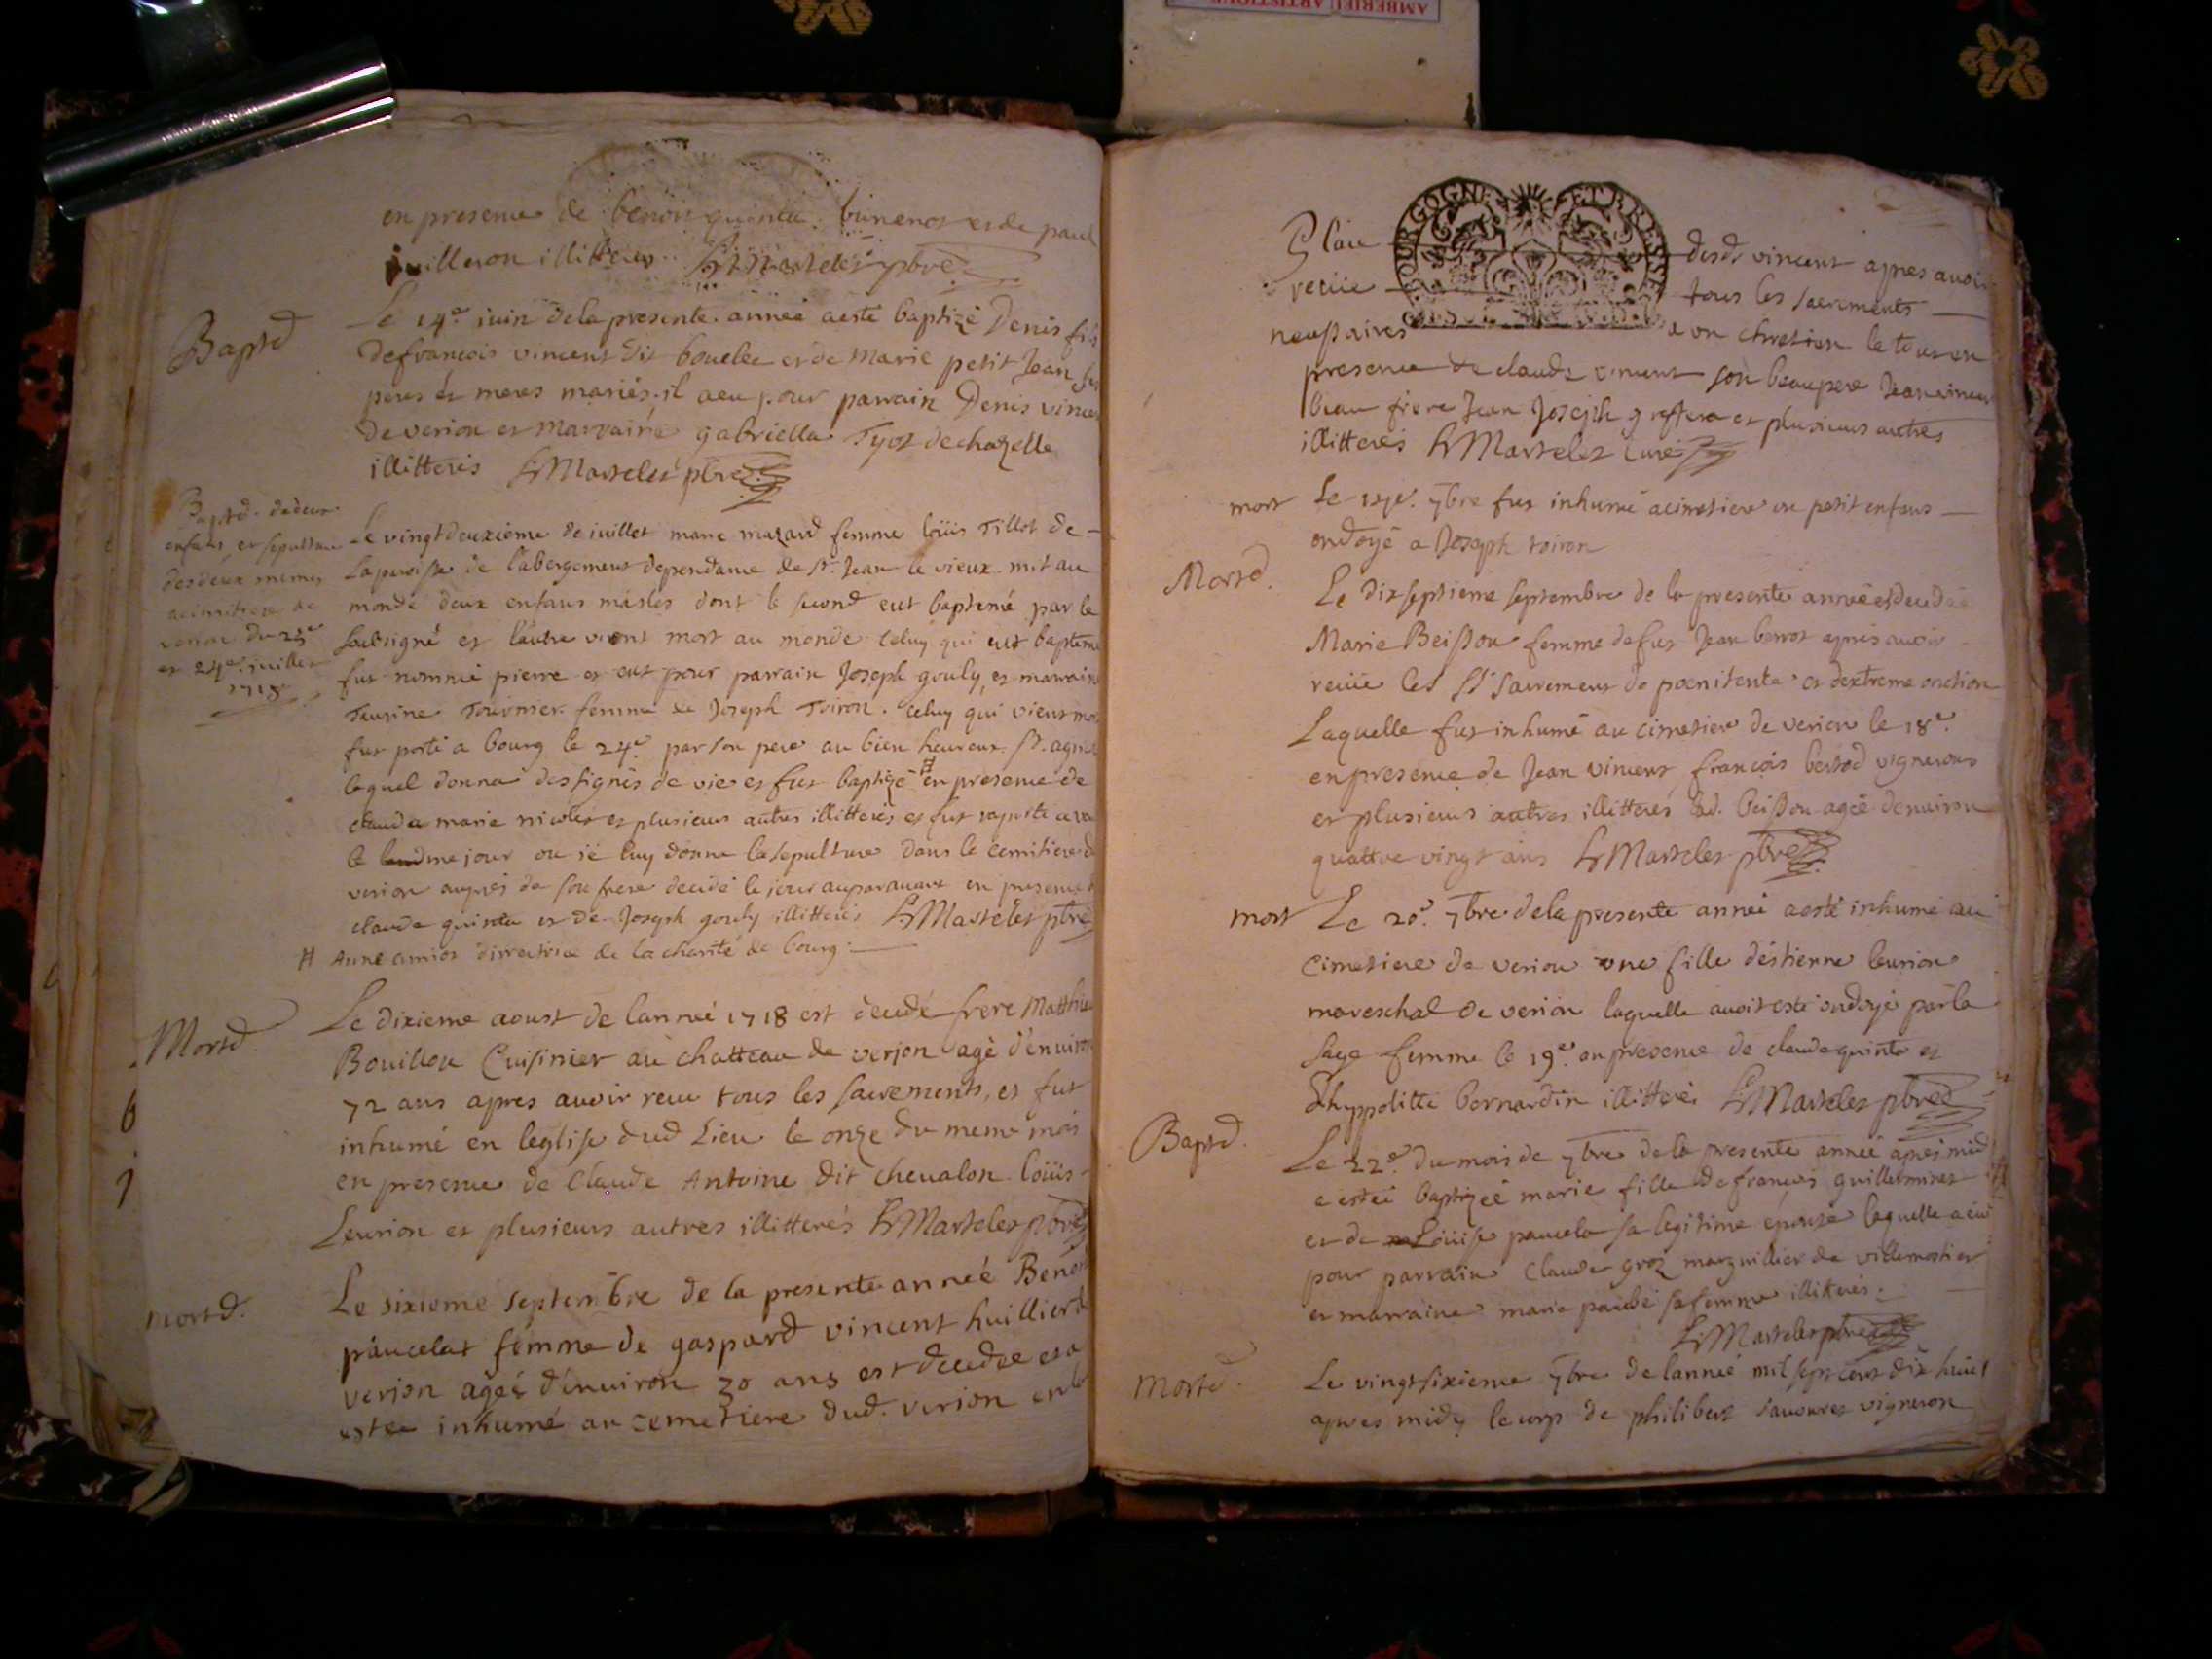 en presence de benoit quinta. et de paul
juilleron illitterés Martelet pbre
Baptd
Le 14e juin de la presente année a esté baptizé Denis fils
de francois vincent dit bouclee et de Marie petit Jean ses
peres et meres mariés. il a eu pour parrain Denis vincent
de verion et marraine gabriella Tyot de chazelle
illitterés Martelet pbre
Baptd. de deux
enfans et sepulture
des deux mesmes
au cimitiere de
verion du 23e
et 24e. juillet
1718
Le vingtdeuxieme de juillet marie mazard femme loüis Tillot de
la paroisse de l'abergement dependance de St. Jean le vieux mit au
monde deux enfans masles dont le second eut baptemé par le
soubsigné et l'autre vient mort au monde celuy qui eut bapteme
fut nommé pierre et eut pour parrain Joseph gouly, et marraine
Tournier femme de Joseph Toiron. celuy qui vient mort
fut porté a bourg le 24e par son pere au bien heureux St.
lequel donna des signes de vie et fut baptizé # en presence de
claude marie nicolet et plusieurs autres illitterés et fut raporté a
le mesme jour ou ie luy donne la sepulture dans le cemitiere de
verion aupres de son frere decedé le jour auparavant en presence de
claude quinta et de Joseph gouly illitterés Martelet pbre
# Anne amiot directrice de la charité de bourg.
Mortd
Le dixieme aoust de lanneé 1718 est decedé frere Matthieu
Bouillon Cuisinier au chatteau de verjon agé d'enuiron
72 ans apres auoir receu tous les sacrements, et fut
inhumé en leglise dud Lieu le onze du meme mois
en presence de Claude Antoine dit cheualon loüis
Leurion et plusieurs autres illitterés Martelet pbre
mortd.
Le sixieme septembre de la presente anneé Benoite
paucelat femme de gaspard vincent huillier de
verjon ageé d'enuiron 30 ans est decedeé et a
esteé inhumé au cemetiere dud. verion en la
BOURGOGNE ET BRESSE
place dudt vincent apres auoir
reciie tous les sacrements
necessaires a vn chretien le tout en
presence de claude vincent son beaupere Jean vincent
beau frere Jean Joseph et plusieurs autres
illitterés Martelet curé
mort
Le 7bre fut inhumé a cimetiere vn petit enfans
ondoyé a Joseph toiron
Mortd.
Le dix septieme septembre de la presente année est decedeé
Marie Beisson femme de fut Jean berrot apres auoir
reciie les St Sacrement de poenitente et dextreme onction
Laquelle fut inhumé au cimetiere de verion le 18e.
en presence de Jean vincent francois bertod vignerons
et plusieurs autres illitterés lad. beisson ageé denuiron
quattre vingt ans Martelet pbre
mort
Le 20e. 7bre de la presente anneé a esté inhumé au
cimetiere de verion vne fille déstienne leurion
mareschal de verion laquelle auoit esté ondoyé par la
sage femme le 19e. en presence de claude quinta et
d'hyppolitte bernardin illitterés Martelet pbre
Baptd.
Le 22e. du mois de 7bre de la presente anneé apres midy
a esteé baptizeé marie fille de francois guilleminet
et de Loüise paucela sa legitime épouse laquelle a eu
pour parrain Claude groz marguillier de villemotier
et marraine marie paubé sa femme illitterés.
Martelet pbre
Mortd.
Le vingtsixieme 7bre de lanneé mil sept cent dix huict
apres midy le corp de philibert sauouret vigneron